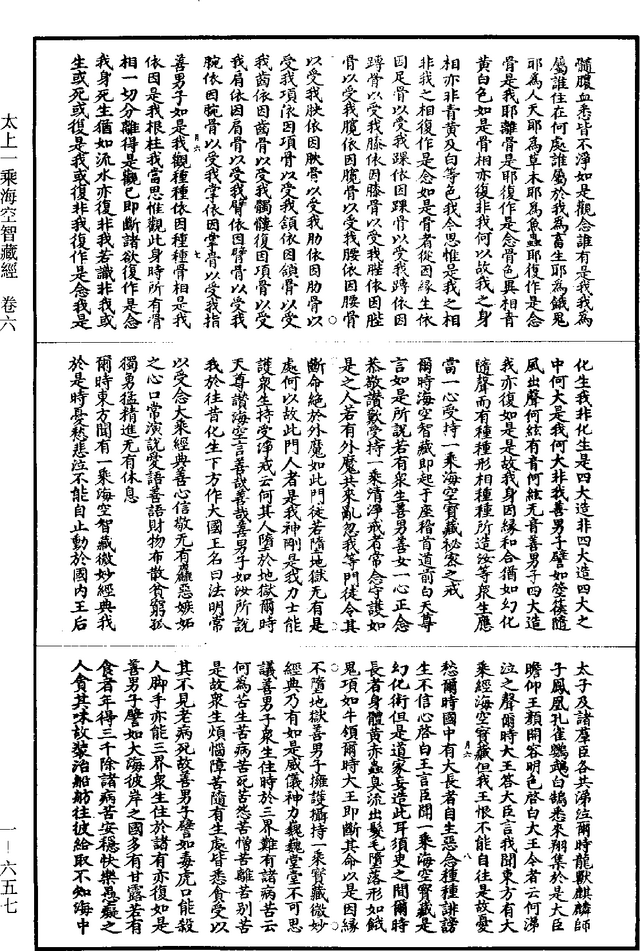 髓腹血悉皆不淨如是觀念誰有是我我為
屬誰住在何處誰屬於我為畜生耶為餓鬼
耶為人天耶為草木耶為魚蟲耶復作是念
骨是我耶離骨是耶復作是念骨色異相青
黃白色如是骨相亦復非我何以故我之身
相亦非青黃及白等色我今思惟是我之相
非我之相復作是念如是骨者從因緣生依
因足骨以受我踝依因踝骨以受我𨄔依因
𨄔骨以受我膝依因膝骨以受我䏶依因䏶
骨以受我臗依因臗骨以受我腰依因腰骨
以受我肷依因肷骨以受我肋依因肋骨以
受我項依因項骨以受我頷依因頷骨以受
我齒依因齒骨以受我髑髏復因項骨以受
我肩依因肩骨以受我臂依因臂骨以受我
腕依因腕骨以受我掌依因掌骨以受我指
善男子如是我觀種種依因種種骨相是我
依因是我根柱我當思惟觀此身時所有骨
相一切分離得是觀已即斷諸欲復作是念
我身死生猶如流水亦復非我若識非我或
生或死或復是我或復非我復作是念我是
化生我非化生是四大造非四大造四大之
中何大是我何大非我善男子譬如箜篌隨
風出聲何絃有音何絃无音善男子四大造
我亦復如是是故我身因緣和合猶如幻化
隨聲而有種種形相種種所造汝等眾生應
當一心受持一乘海空寶藏祕密之戒
爾時海空智藏即起于座稽首道前白天尊
言如是所說若有眾生善男善女一心正念
恭敬讚歎受持一乘清淨戒者常念守護如
是之人若有外魔共來亂忽我等門徒令其
斷命絕於外魔如此門徒若墮地獄无有是
處何以故此門人者是我神剛是我力士能
護眾生持受淨戒云何其人墮於地獄爾時
天尊讚海空言善哉善哉善男子如汝所說
我於往昔化生下方作大國王名曰法明常
以受念大乘經典善心信敬无有麤惡嫉妬
之心口常演說愛語善語財物布散貧窮孤
獨勇猛精進无有休息
爾時東方聞有一乘海空智藏微妙經典我
於是時憂愁悲泣不能自止動於國內王后
太子及諸羣臣各共涕泣爾時龍獸麒麟師
子鳳凰孔雀鸚鵡白鶴悉來翔集於是大臣
瞻仰王顏開容明色啓白大王令者云何涕
泣之聲爾時大王答大臣言我聞東方有大
乘經海空寶藏但我王恨不能自往是故憂
愁爾時國中有大長者自生惡念種種誹謗
生不信心啓白王言臣聞一乘海空寶藏是
幻化術但是道家妄造此耳須臾之間爾時
長者身體黃赤蟲臭流出髮毛墮落形如餓
鬼項如牛領爾時大王即斷其命以是因緣
不墮地獄善男子擁護攝持一乘寶藏微妙
經典乃有如是威儀神力巍巍堂堂不可思
議善男子眾生住時於三界難有諸病苦云
何為苦生苦病苦死苦怨苦憎苦離苦別苦
是故眾生煩惱障苦隨有生處皆悉貪受以
其不見老病死故善男子譬如毒虎口能殺
人脚手亦能三界眾生住於諸有亦復如是
善男子譬如大海彼岸之國多有甘露若有
食者年得三千除諸病苦安穩快樂愚癡之
人貪其味故裝治船舫往彼給取不知海中
太上一乘海空智藏經 卷六
一—六五七